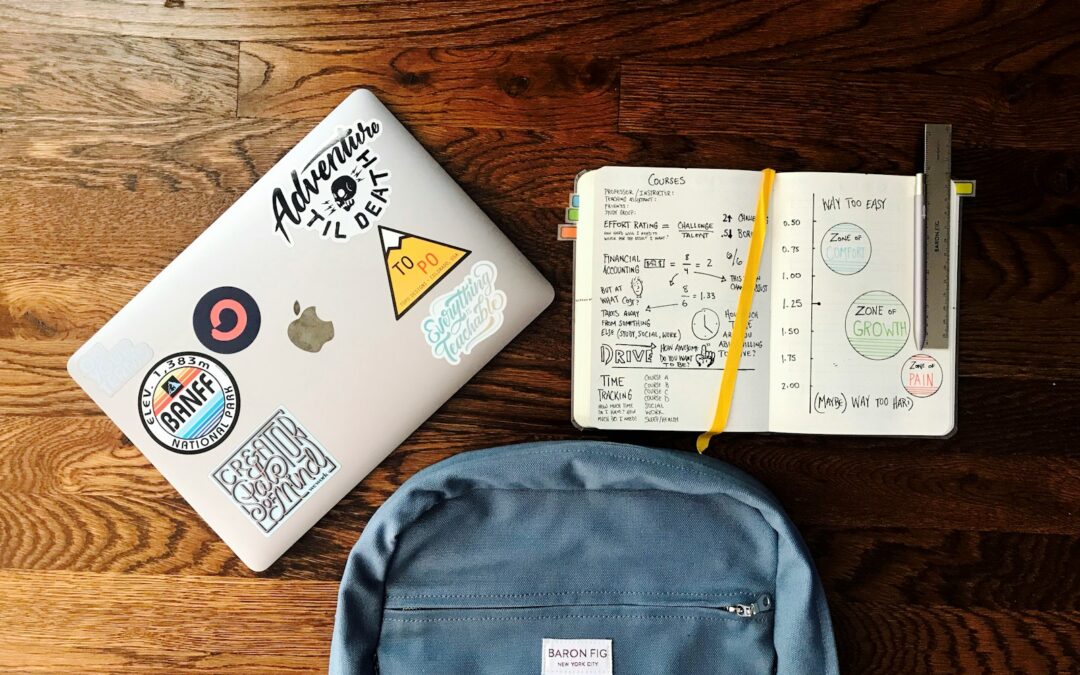 Adventure
'TIL DEATH
TO PO
everything
is
Teachable
ELEV. 1,383m
BANFF
NATIONAL PARK
CREATOR
of mind
COURSES
PROFESSOR / INSTRUCTOR:
TEACHING ASSISTANT:
FRIENDS:
STUDY GROUP:
EFFORT RATING = CHALLENGE
TALENT
HOW HARD WILL I NEED TO
WORK FOR THE EFFORT I WANT?
FINANCIAL
ACCOUNTING
= 8/4 = 2
6/6
BUT AT
WHAT COST?
8/6 = 1.33
TAKES AWAY
FROM SOMETHING
ELSE (STUDY, SOCIAL, WORK)
DRIVE
HOW AWESOME
DO YOU WANT
TO BE?
TIME
TRACKING
HOW MUCH TIME
DO I HAVE? HOW
MUCH DO I NEED?
COURSE A
COURSE B
COURSE C
COURSE D
SOCIAL
WORK
SLEEP/HEALTH
WAY TOO EASY
0.50
0.75
1.00
1.25
1.50
1.75
2.00
ZONE OF
COMFORT
ZONE OF
GROWTH
ZONE OF
PAIN
(MAYBE) WAY TOO HARD
BARON FIG
BARON FIG
NEW YORK CITY